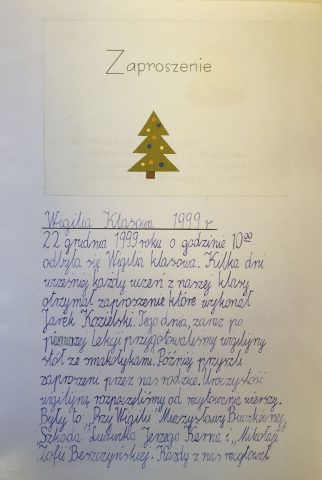 Zaproszenie
Wigilia Klasowa 1999 r.
22 grudnia 1999 roku o godzinie 10⁰⁰
odbyła się Wigilia klasowa. Kilka dni
wcześniej każdy uczeń z naszej klasy
otrzymał zaproszenie które wykonał
Jarek Kozielski. Tego dnia, zaraz po
pierwszej lekcji przygotowaliśmy wigilijny
stół ze smakołykami. Później przyszli
zaproszeni przez nas rodzice. Uroczystość
wigilijną rozpoczęliśmy od recytowania wierszy.
Były to: Przy Wigilii" Mieczysławy Buczkównej,
"Szkoda" Ludwika Jerzego Kerna i „Mikołaj"
Zofii Beszczyńskiej. Każdy z nas recytował